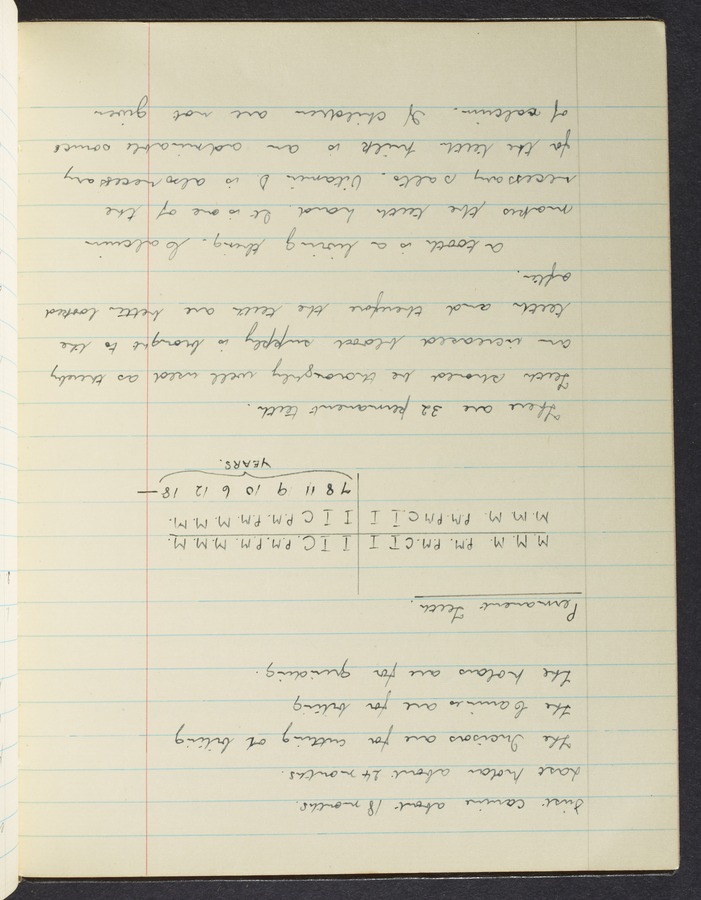 First canine about 18 months.
Last molar about 24 months.
The Incisors are for cutting or biting
The Canines are for biting
The Molars are for grinding.
Permanent Teeth.
M. M. M. P.M. P.M. C I I | I I C. P.M. P.M. M. M. M.
M. M. M. P.M. P.M. C. I I | I I C P.M. P.M. M. M. M.
7 8 11 9 10 6 12 18 —
YEARS.
There are 32 permanent teeth.
Teeth should be thoroughly well used as thereby
an increased blood supply is brought to the
teeth and therefore the teeth are better looked
after.
A tooth is a living thing. Calcium
makes the teeth hard. It is one of the
necessary salts. Vitamin D is also necessary
for the teeth. Milk is an admirable source
of calcium. If children are not given